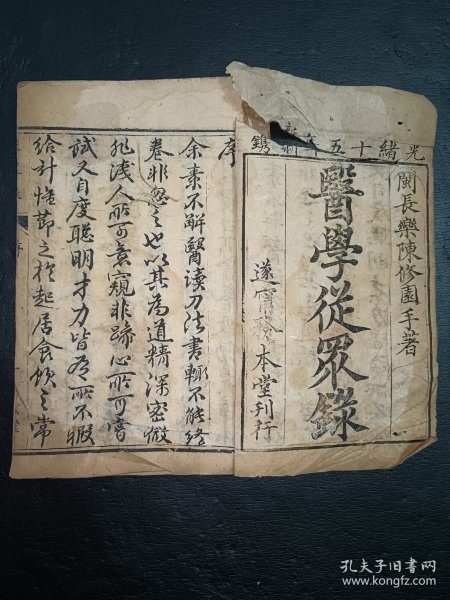 光緒十五年新鐫
閩長樂陳修園手著
醫學從眾錄
遂寧務本堂刊行
序
余素不解醫讀方法書輒不能終
卷非忽之也以其為道精深密微
非淺人所可窺非躁心所可嘗
試又自度聰明才力皆有所不暇
給計惟節之於起居食飲之常
孔夫子旧书网
www.kongfz.com